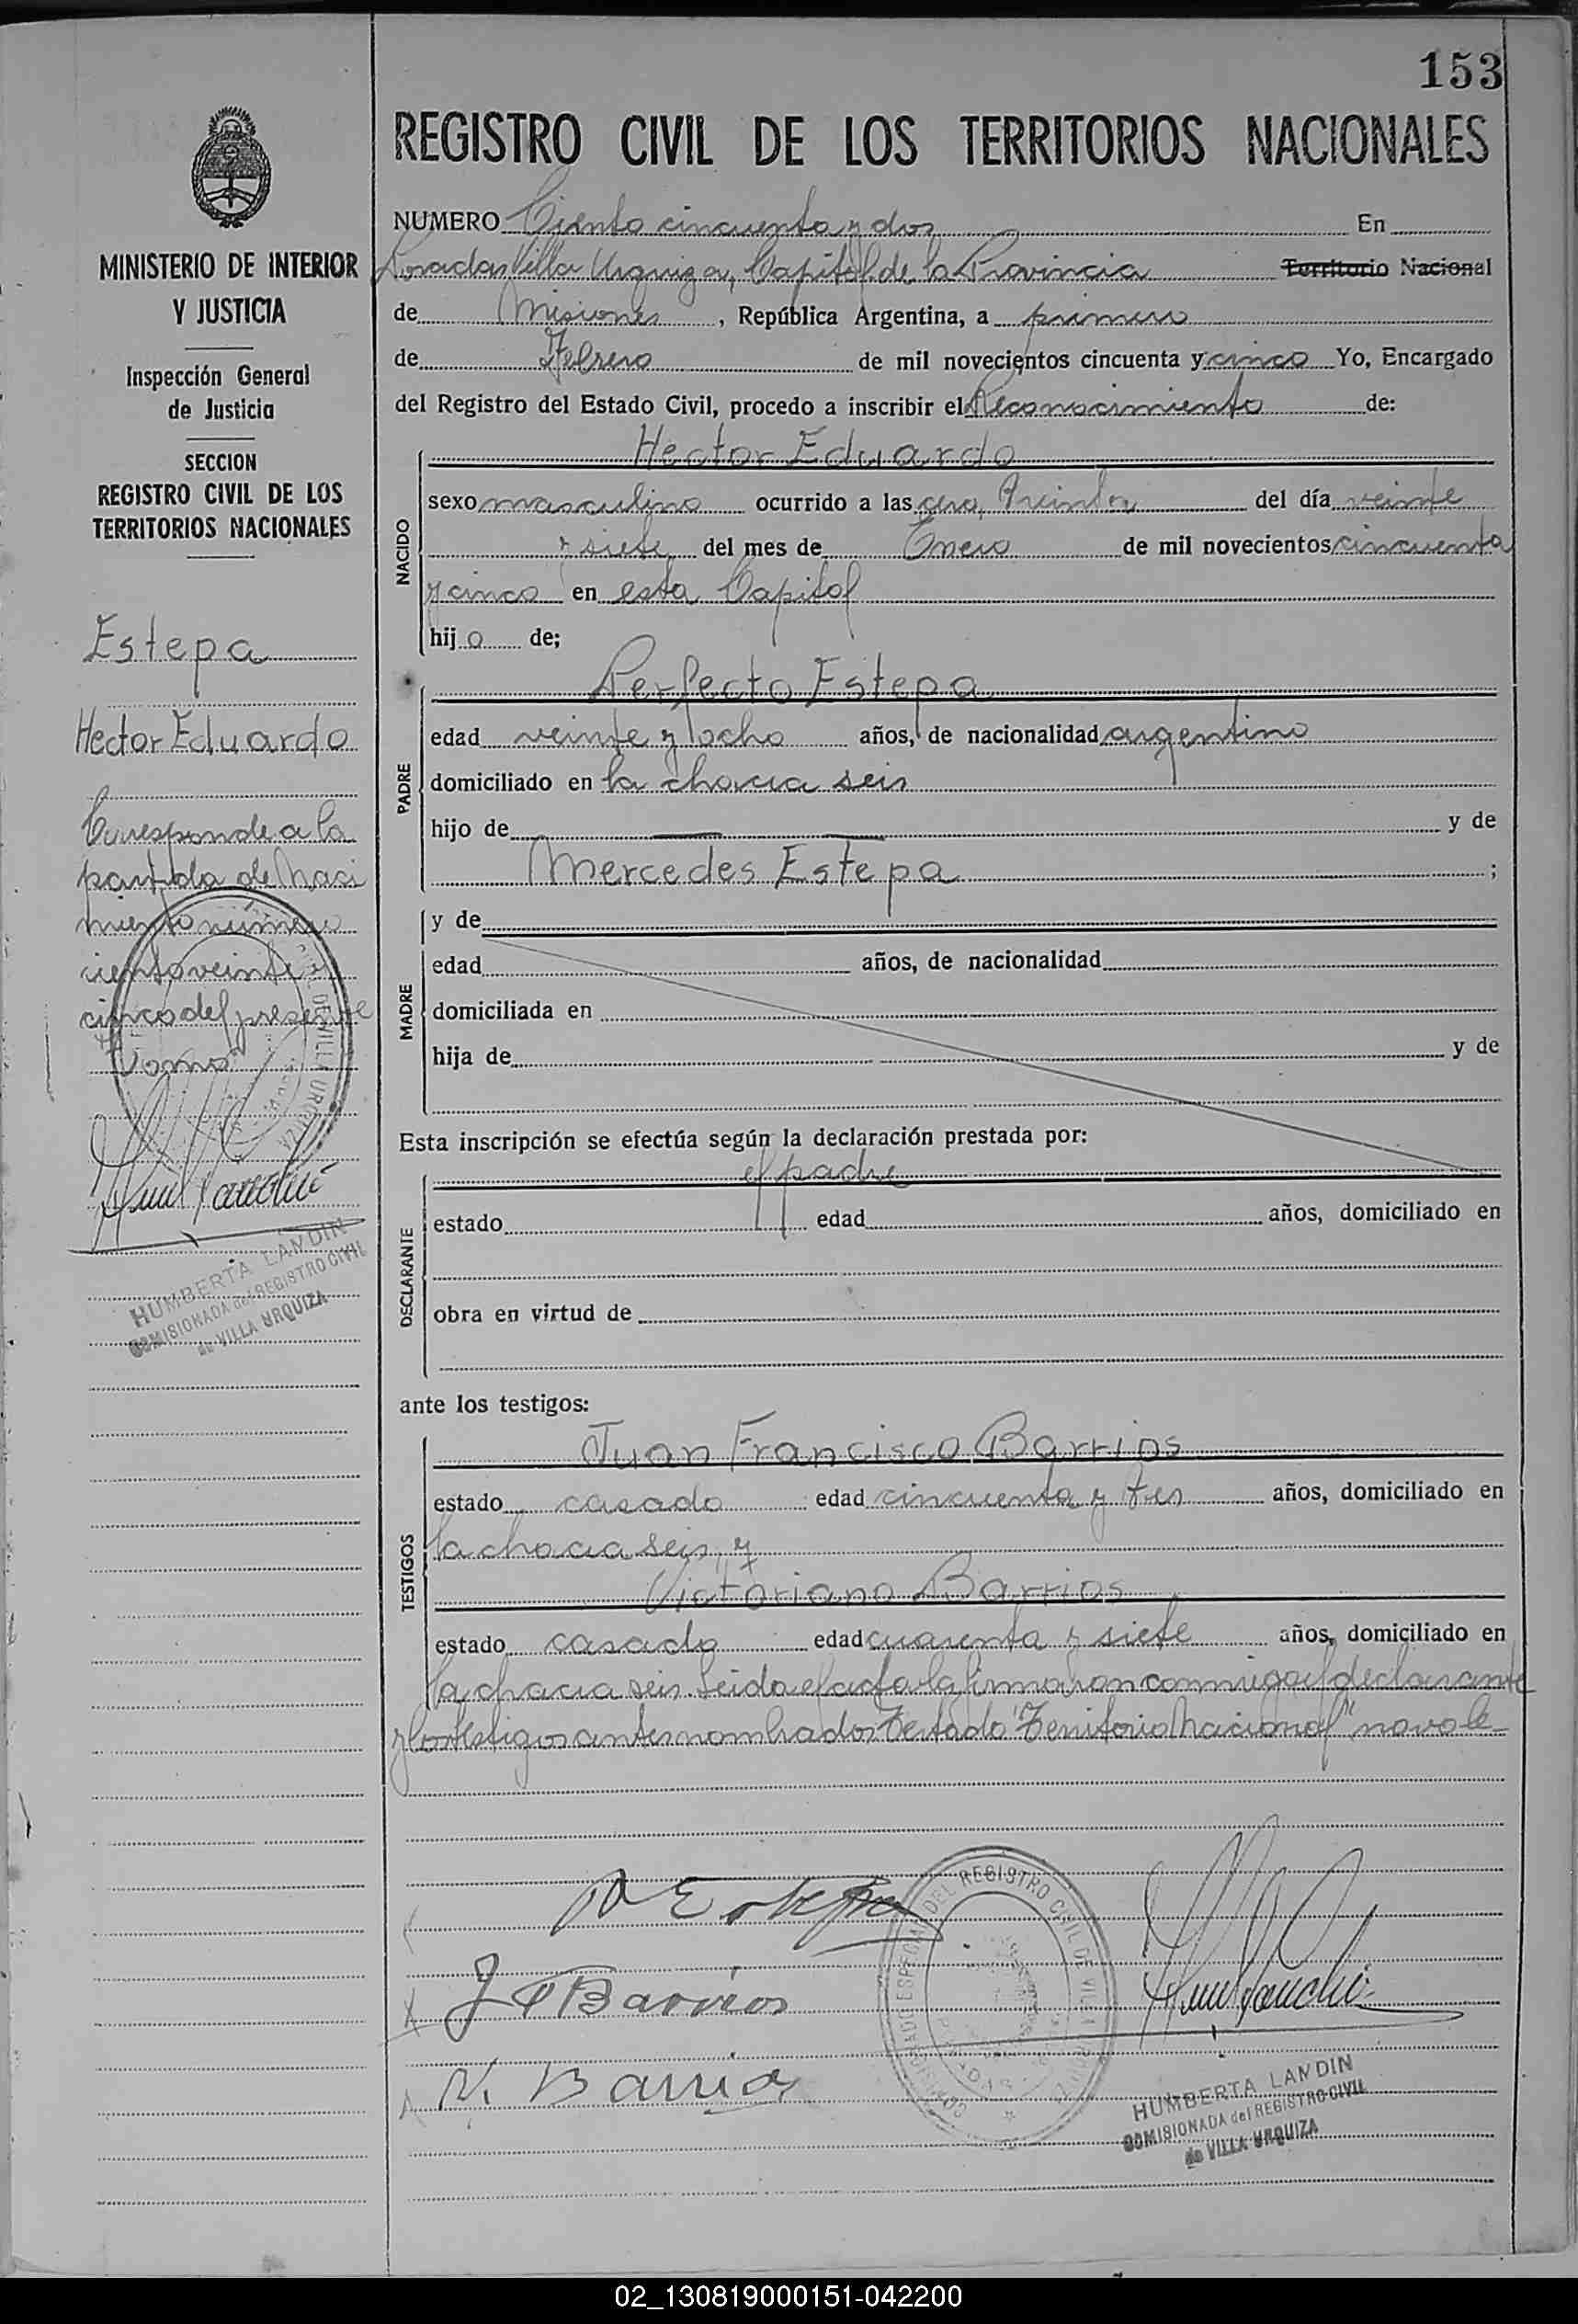 153
REGISTRO CIVIL DE LOS TERRITORIOS NACIONALES
NUMERO Ciento cincuenta y dos En
Posadas Villa Urquiza, Capital de la Provincia Territorio Nacional
de Misiones, República Argentina, a primero
de Febrero de mil novecientos cincuenta y cinco Yo, Encargado
del Registro del Estado Civil, procedo a inscribir el Reconocimiento de:
NACIDO
Hector Eduardo
sexo masculino ocurrido a las cero, treinta del día veinte
y siete del mes de Enero de mil novecientos cincuenta
y cinco en esta Capital
hijo de;
PADRE
Perfecto Estepa
edad veinte y ocho años, de nacionalidad argentino
domiciliado en la chacra seis
hijo de y de
Mercedes Estepa ;
MADRE
y de
edad años, de nacionalidad
domiciliada en
hija de y de
Esta inscripción se efectúa según la declaración prestada por:
DECLARANTE
el padre
estado edad años, domiciliado en
obra en virtud de
ante los testigos:
TESTIGOS
Juan Francisco Barrios
estado casado edad cincuenta y tres años, domiciliado en
la chacra seis, y
Victoriano Barrios
estado casado edad cuarenta y siete años, domiciliado en
la chacra seis. Leida el acta la firmaron conmigo el declarante
y los testigos antes nombrados Testado "Territorio Nacional" no vale
P Estepa
J F Barrios
V. Barrios
REGISTRO CIVIL DE VILLA
HUMBERTA LANDIN
COMISIONADA del REGISTRO CIVIL
de VILLA URQUIZA
MINISTERIO DE INTERIOR
Y JUSTICIA
Inspección General
de Justicia
SECCION
REGISTRO CIVIL DE LOS
TERRITORIOS NACIONALES
Estepa
Hector Eduardo
Corresponde a la
partida de Naci
miento número
ciento veinte y
cinco del presente
Tomo
DE VILLA URQUIZA
HUMBERTA LANDIN
COMISIONADA del REGISTRO CIVIL
de VILLA URQUIZA
02_130819000151-042200